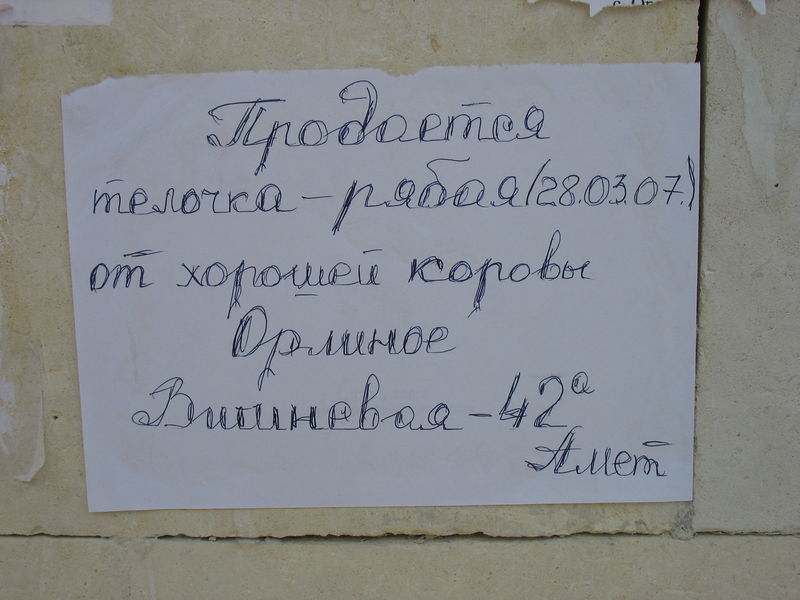 Продается
телочка-рябая (28.03.07.)
от хорошей коровы
Орлиное
Вишневая-42а
Амет